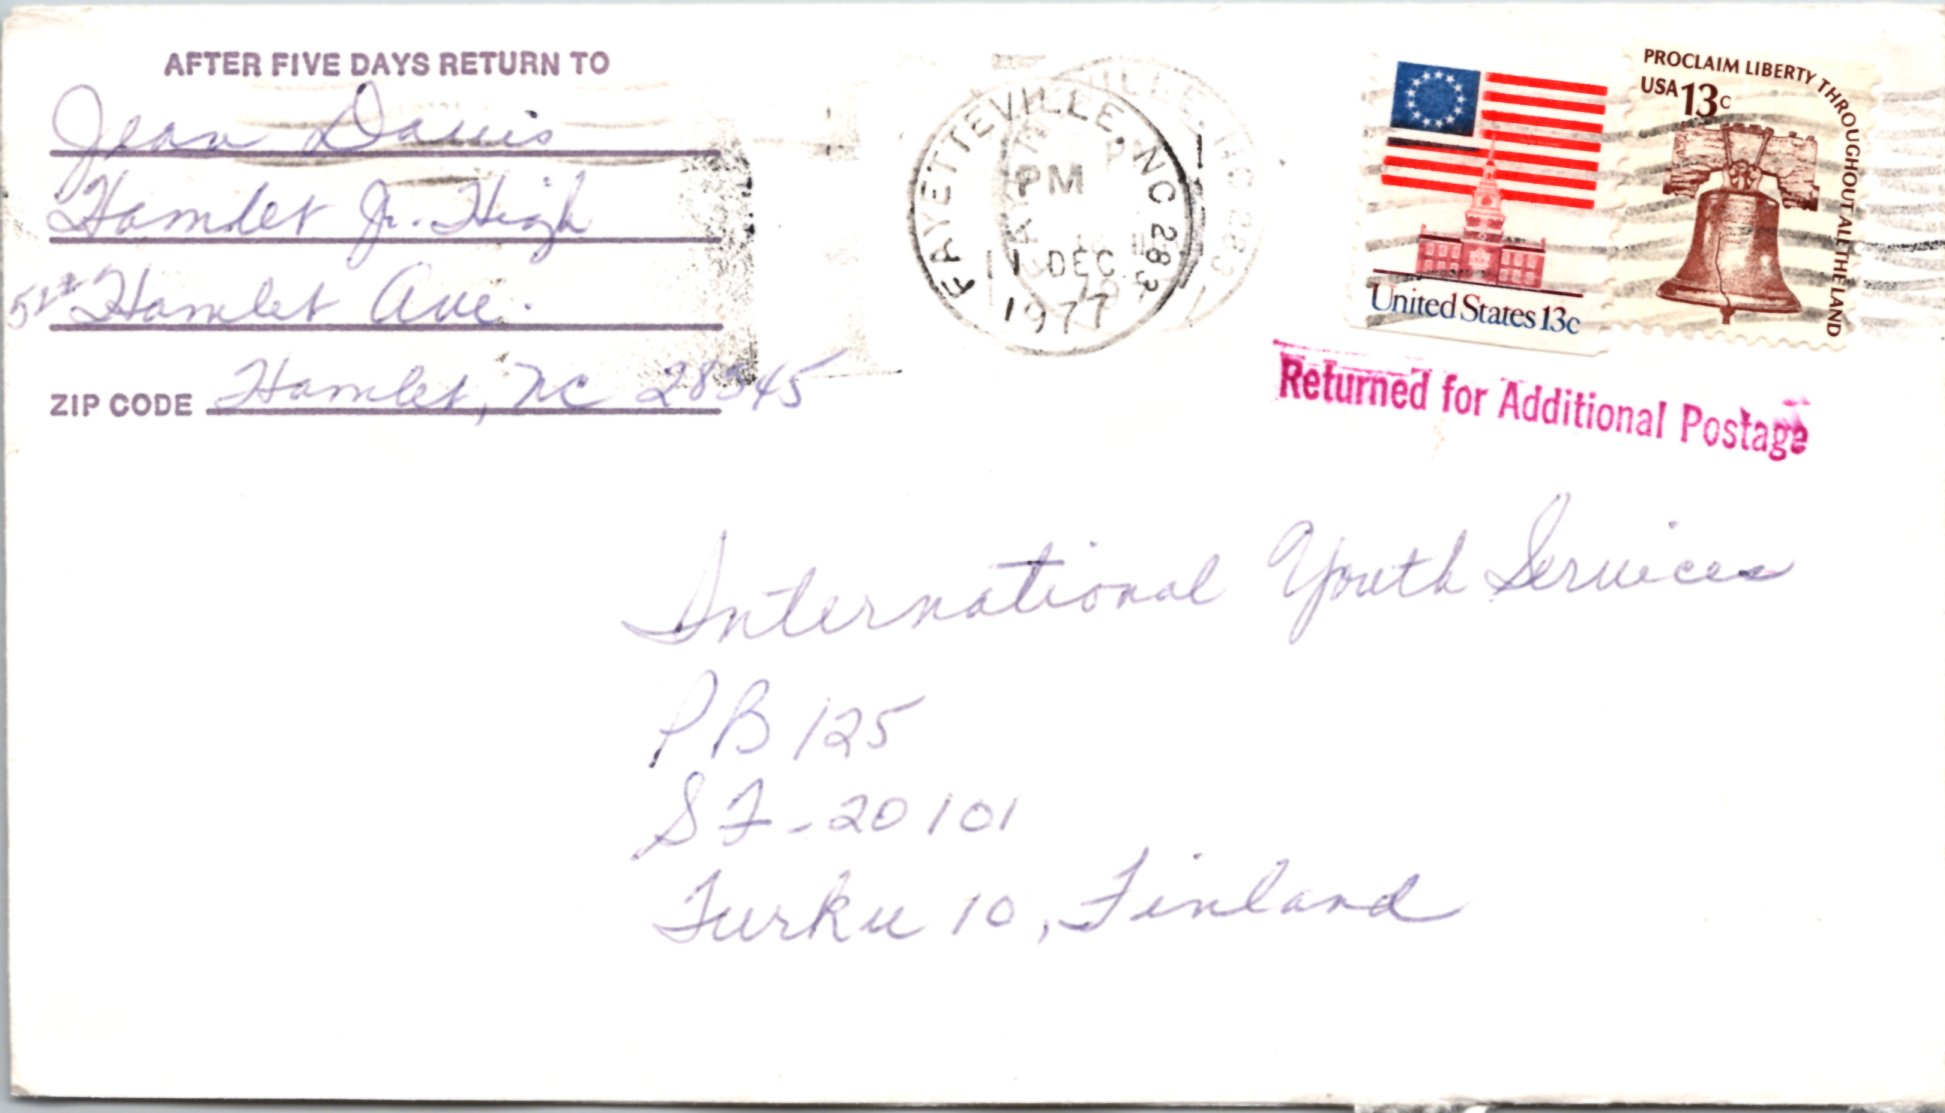 AFTER FIVE DAYS RETURN TO
Jean Davis
Hamlet Jr. High
Hamlet Ave.
ZIP CODE Hamlet, NC 28345
FAYETTEVILLE, NC 283
PM
11 DEC
1977
United States 13c
PROCLAIM LIBERTY THROUGHOUT ALL THE LAND
USA 13c
Returned for Additional Postage
International Youth Services
PB 125
SF-20101
Turku 10, Finland